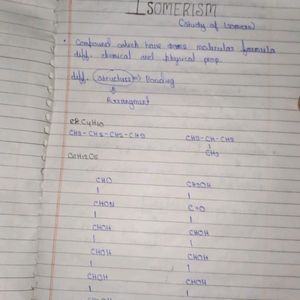 ISOMERISM
(study of isomers)
• Compound which have same molecular formula
diff. chemical and physical prop.
diff. (structure) Bonding
Arrangment
ex. C4H10
CH3-CH2-CH2-CH3 CH3-CH-CH3
CH3
C6H12O6
CHO CH2OH
CHOH C=O
CHOH CHOH
CHOH CHOH
CHOH CHOH